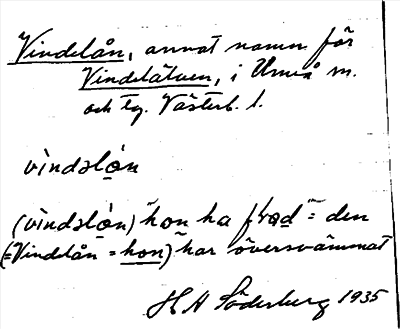 Vindelån, annat namn för
Vindelälven, i Umeå m.
och tg. Västerb. l.
vìndəlǫn
(vìndəlǫ́n) hon ha flod̲ = den
(=Vindelån = hon) har översvämmat
H A Söderberg 1935